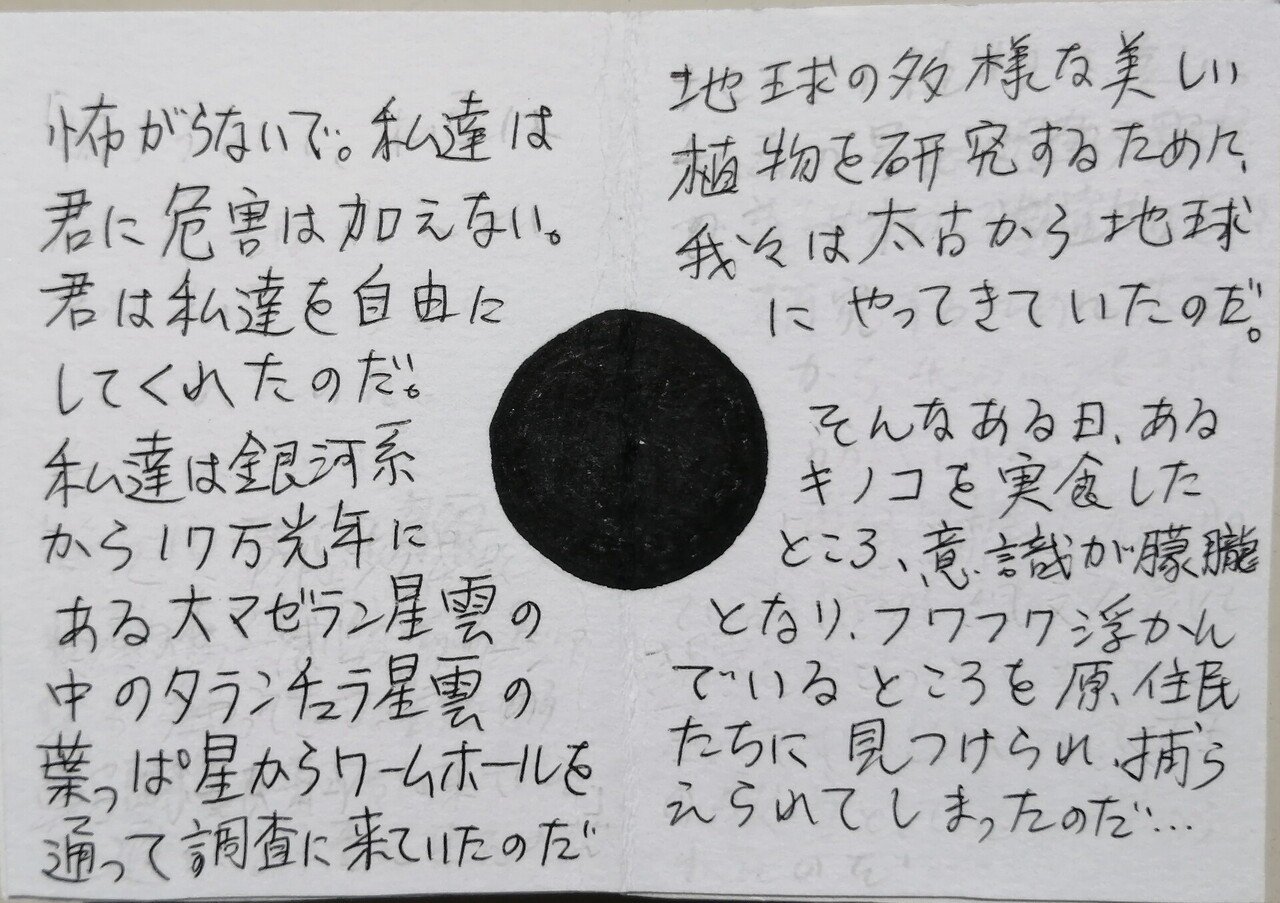 怖がらないで。私達は
君に危害は加えない。
君は私達を自由に
してくれたのだ。
私達は銀河系
から17万光年に
ある大マゼラン星雲の
中のタランチュラ星雲の
葉っぱ星からワームホールを
通って調査に来ていたのだ
地球の多様な美しい
植物を研究するために、
我々は太古から地球
にやってきていたのだ。
そんなある日、ある
キノコを実食した
ところ、意識が朦朧
となり、フワフワ浮かん
でいるところを原住民
たちに見つけられ、捕ら
えられてしまったのだ…